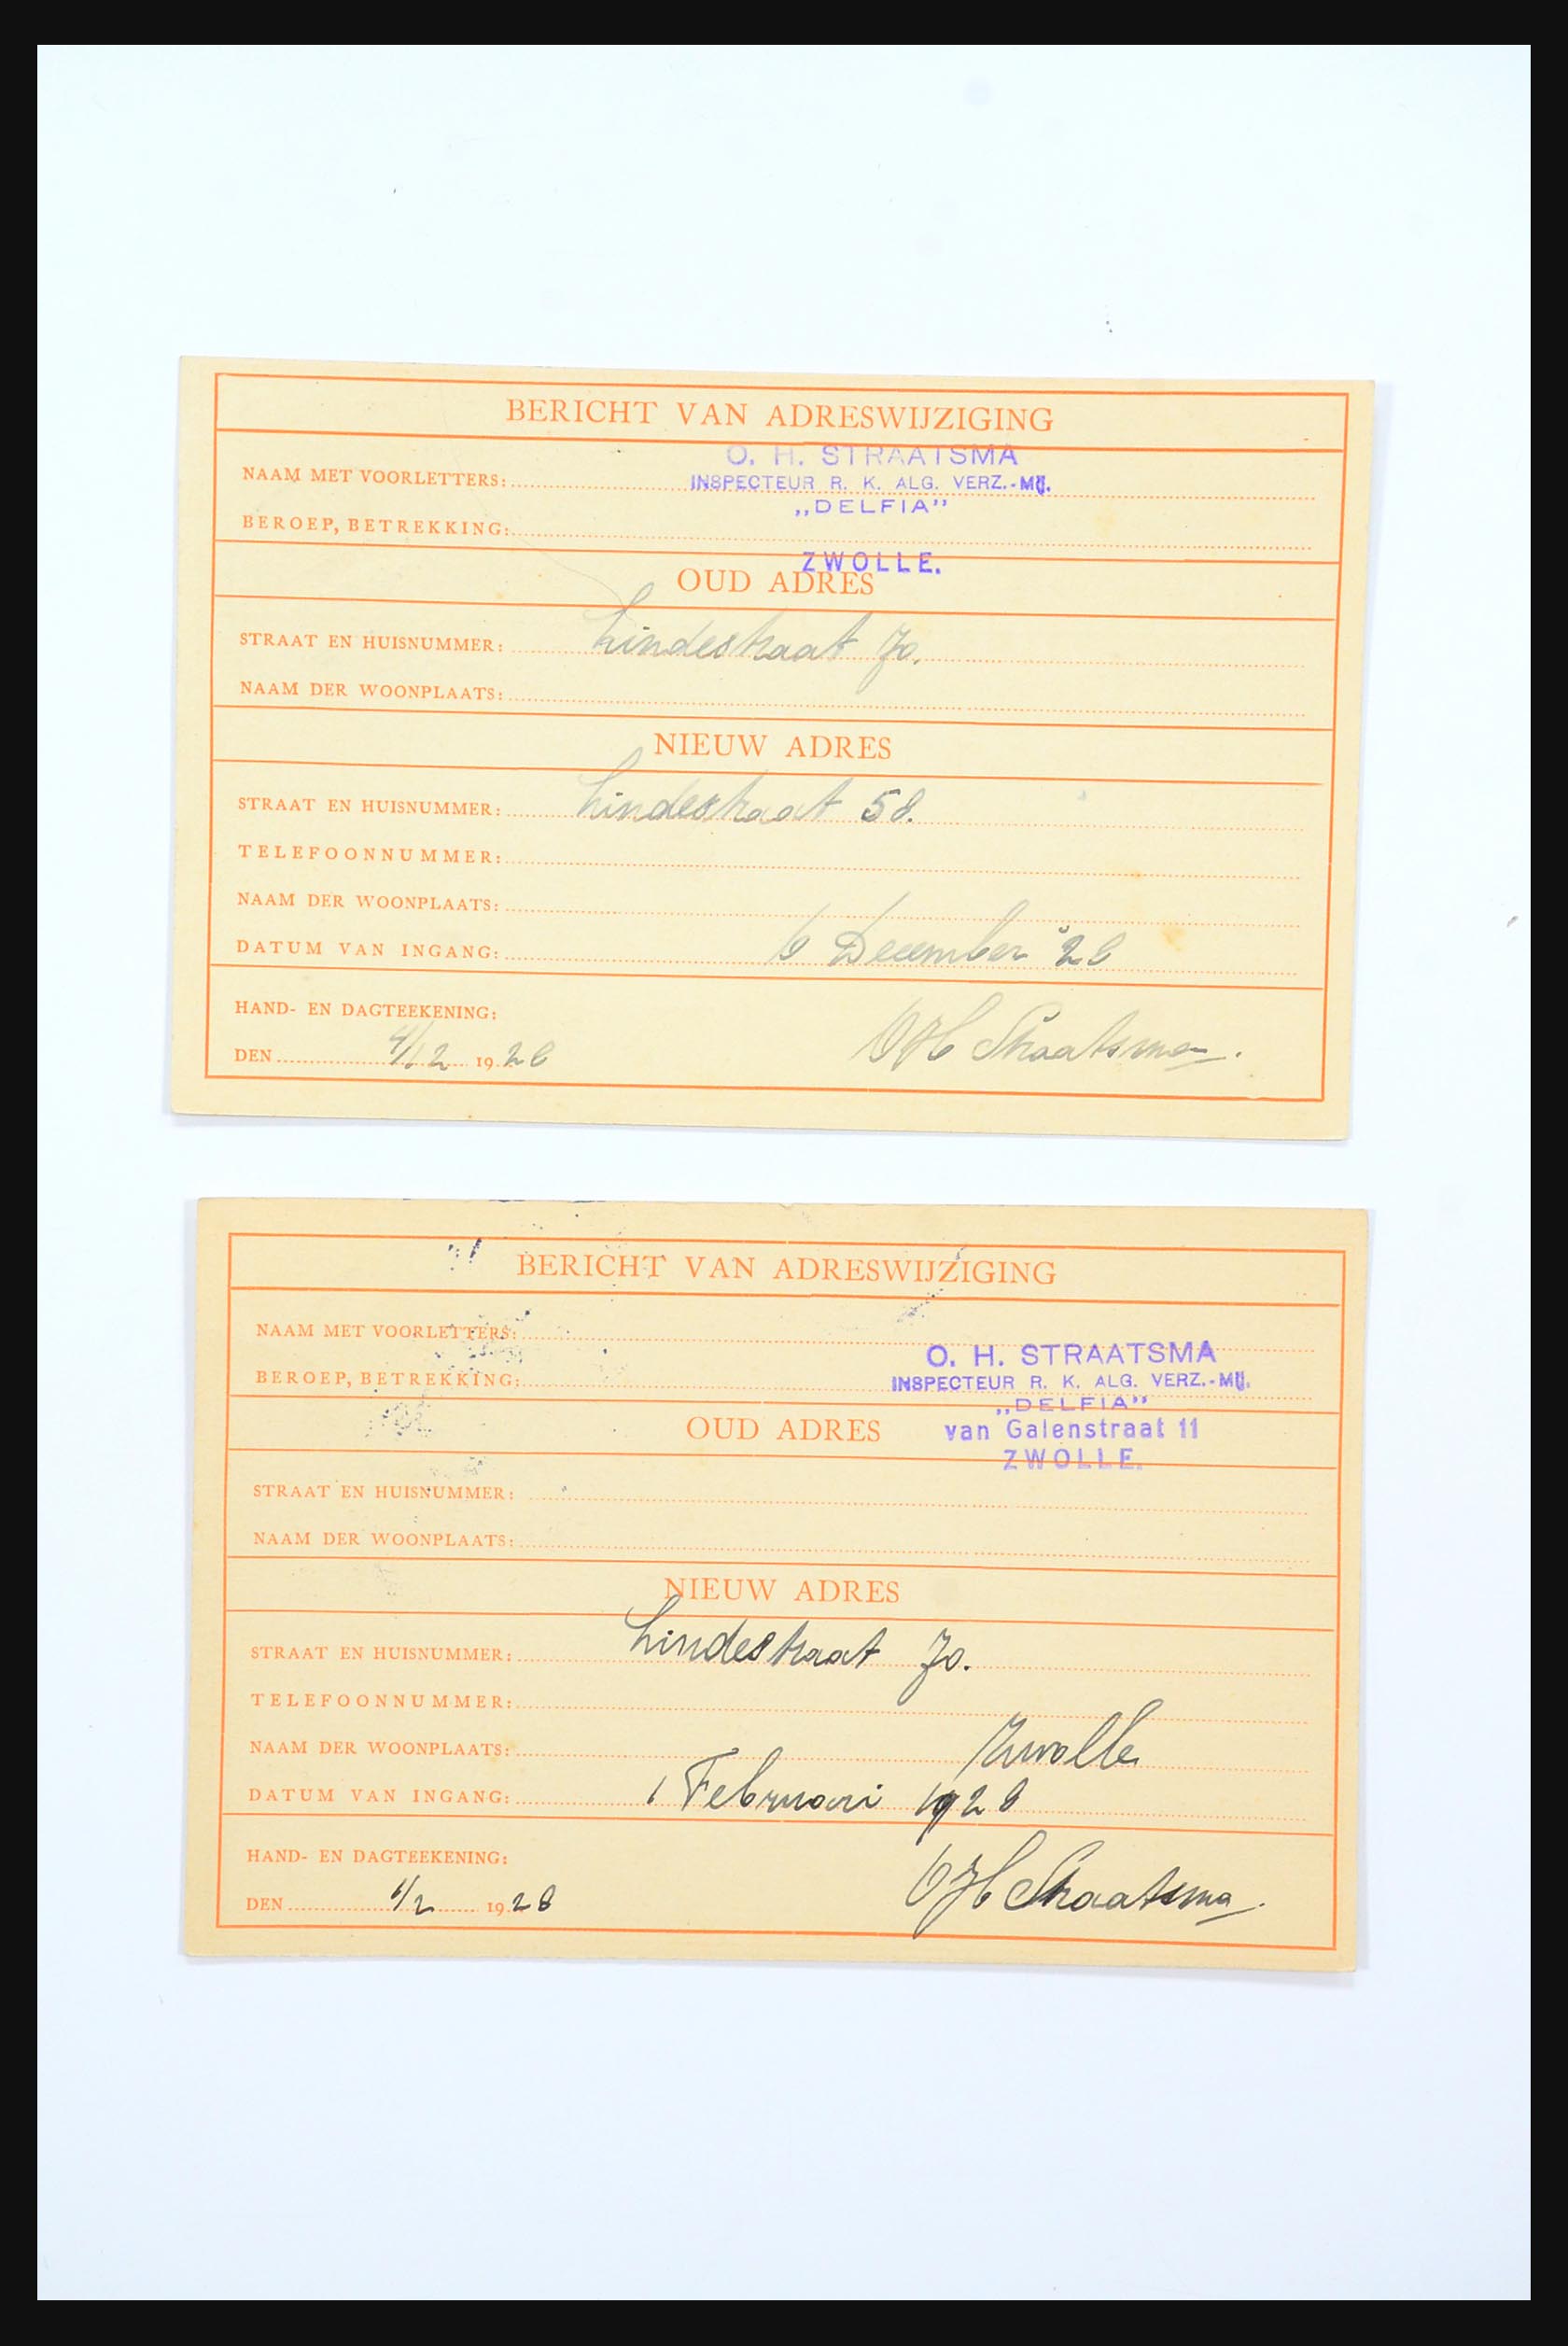 BERICHT VAN ADRESWIJZIGING
O. H. STRAATSMA
NAAM MET VOORLETTERS:
INSPECTEUR R. K. ALG. VERZ.-MIJ.
„DELFIA”
BEROEP, BETREKKING:
ZWOLLE.
OUD ADRES
STRAAT EN HUISNUMMER: Lindestraat 70.
NAAM DER WOONPLAATS:
NIEUW ADRES
STRAAT EN HUISNUMMER: Lindestraat 58.
TELEFOONNUMMER:
NAAM DER WOONPLAATS:
DATUM VAN INGANG: 6 December '28
HAND- EN DAGTEEKENING:
DEN 4/12 1928 OH Straatsma.
BERICHT VAN ADRESWIJZIGING
NAAM MET VOORLETTERS:
O. H. STRAATSMA
BEROEP, BETREKKING:
INSPECTEUR R. K. ALG. VERZ.-MIJ.
„DELFIA”
OUD ADRES
van Galenstraat 11
ZWOLLE.
STRAAT EN HUISNUMMER:
NAAM DER WOONPLAATS:
NIEUW ADRES
STRAAT EN HUISNUMMER: Lindestraat 70.
TELEFOONNUMMER:
NAAM DER WOONPLAATS: Zwolle
DATUM VAN INGANG: 1 Februari 1928
HAND- EN DAGTEEKENING:
DEN 1/2 1928 OH Straatsma.